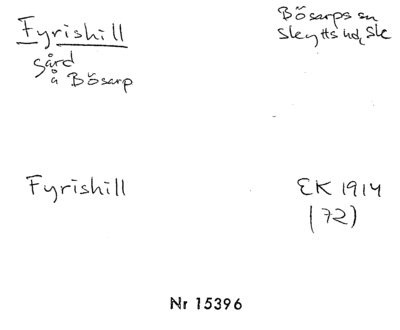 Fyrishill
gård
å Bösarp
Bösarps sn
Skytts hd, Sk
Fyrishill
EK 1914
(72)
Nr 15396